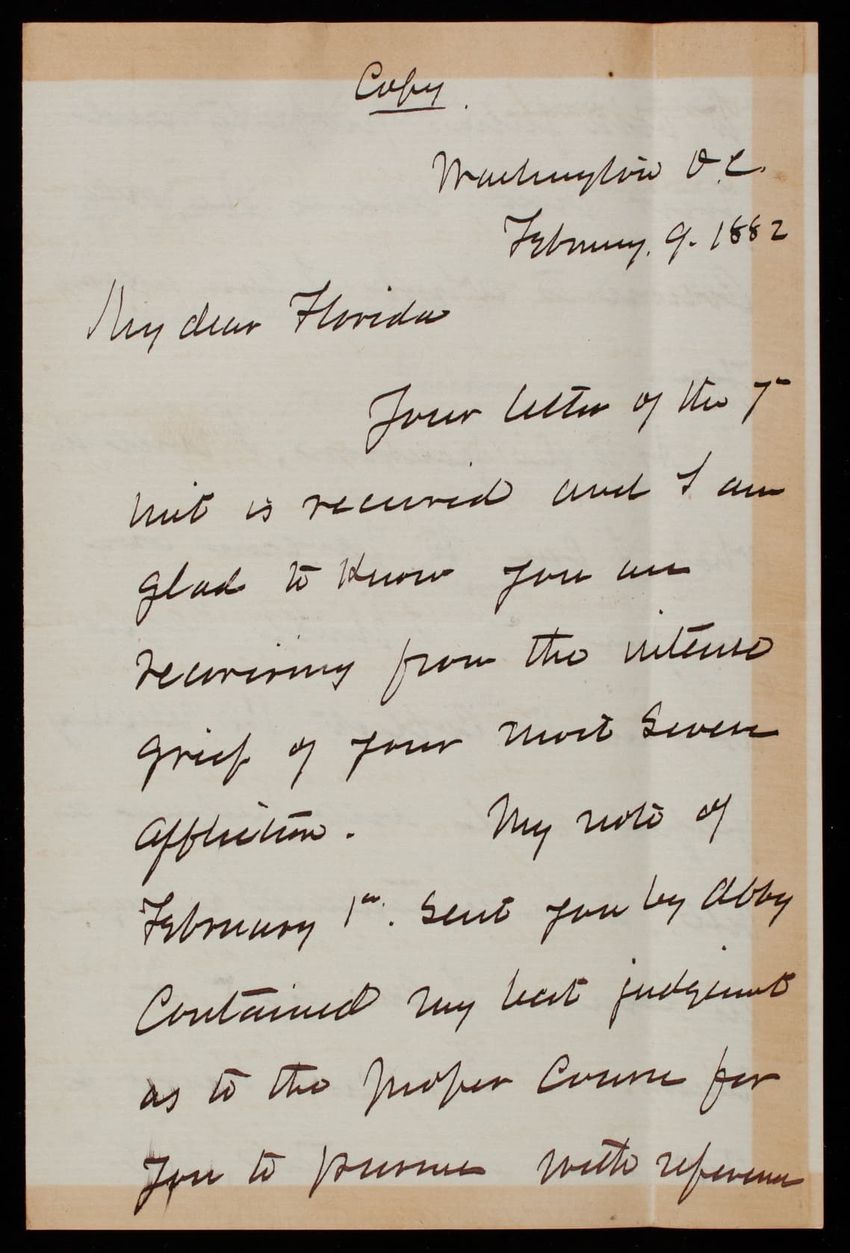 Copy.
Washington D.C.
February. 9. 1882
My dear Florida
Your letter of the 7th
inst is received and I am
glad to know you are
recovering from the intense
grief of your most severe
affliction. My note of
February 1st. sent you by Abby
Contained my best judgment
as to the proper course for
you to pursue with reference